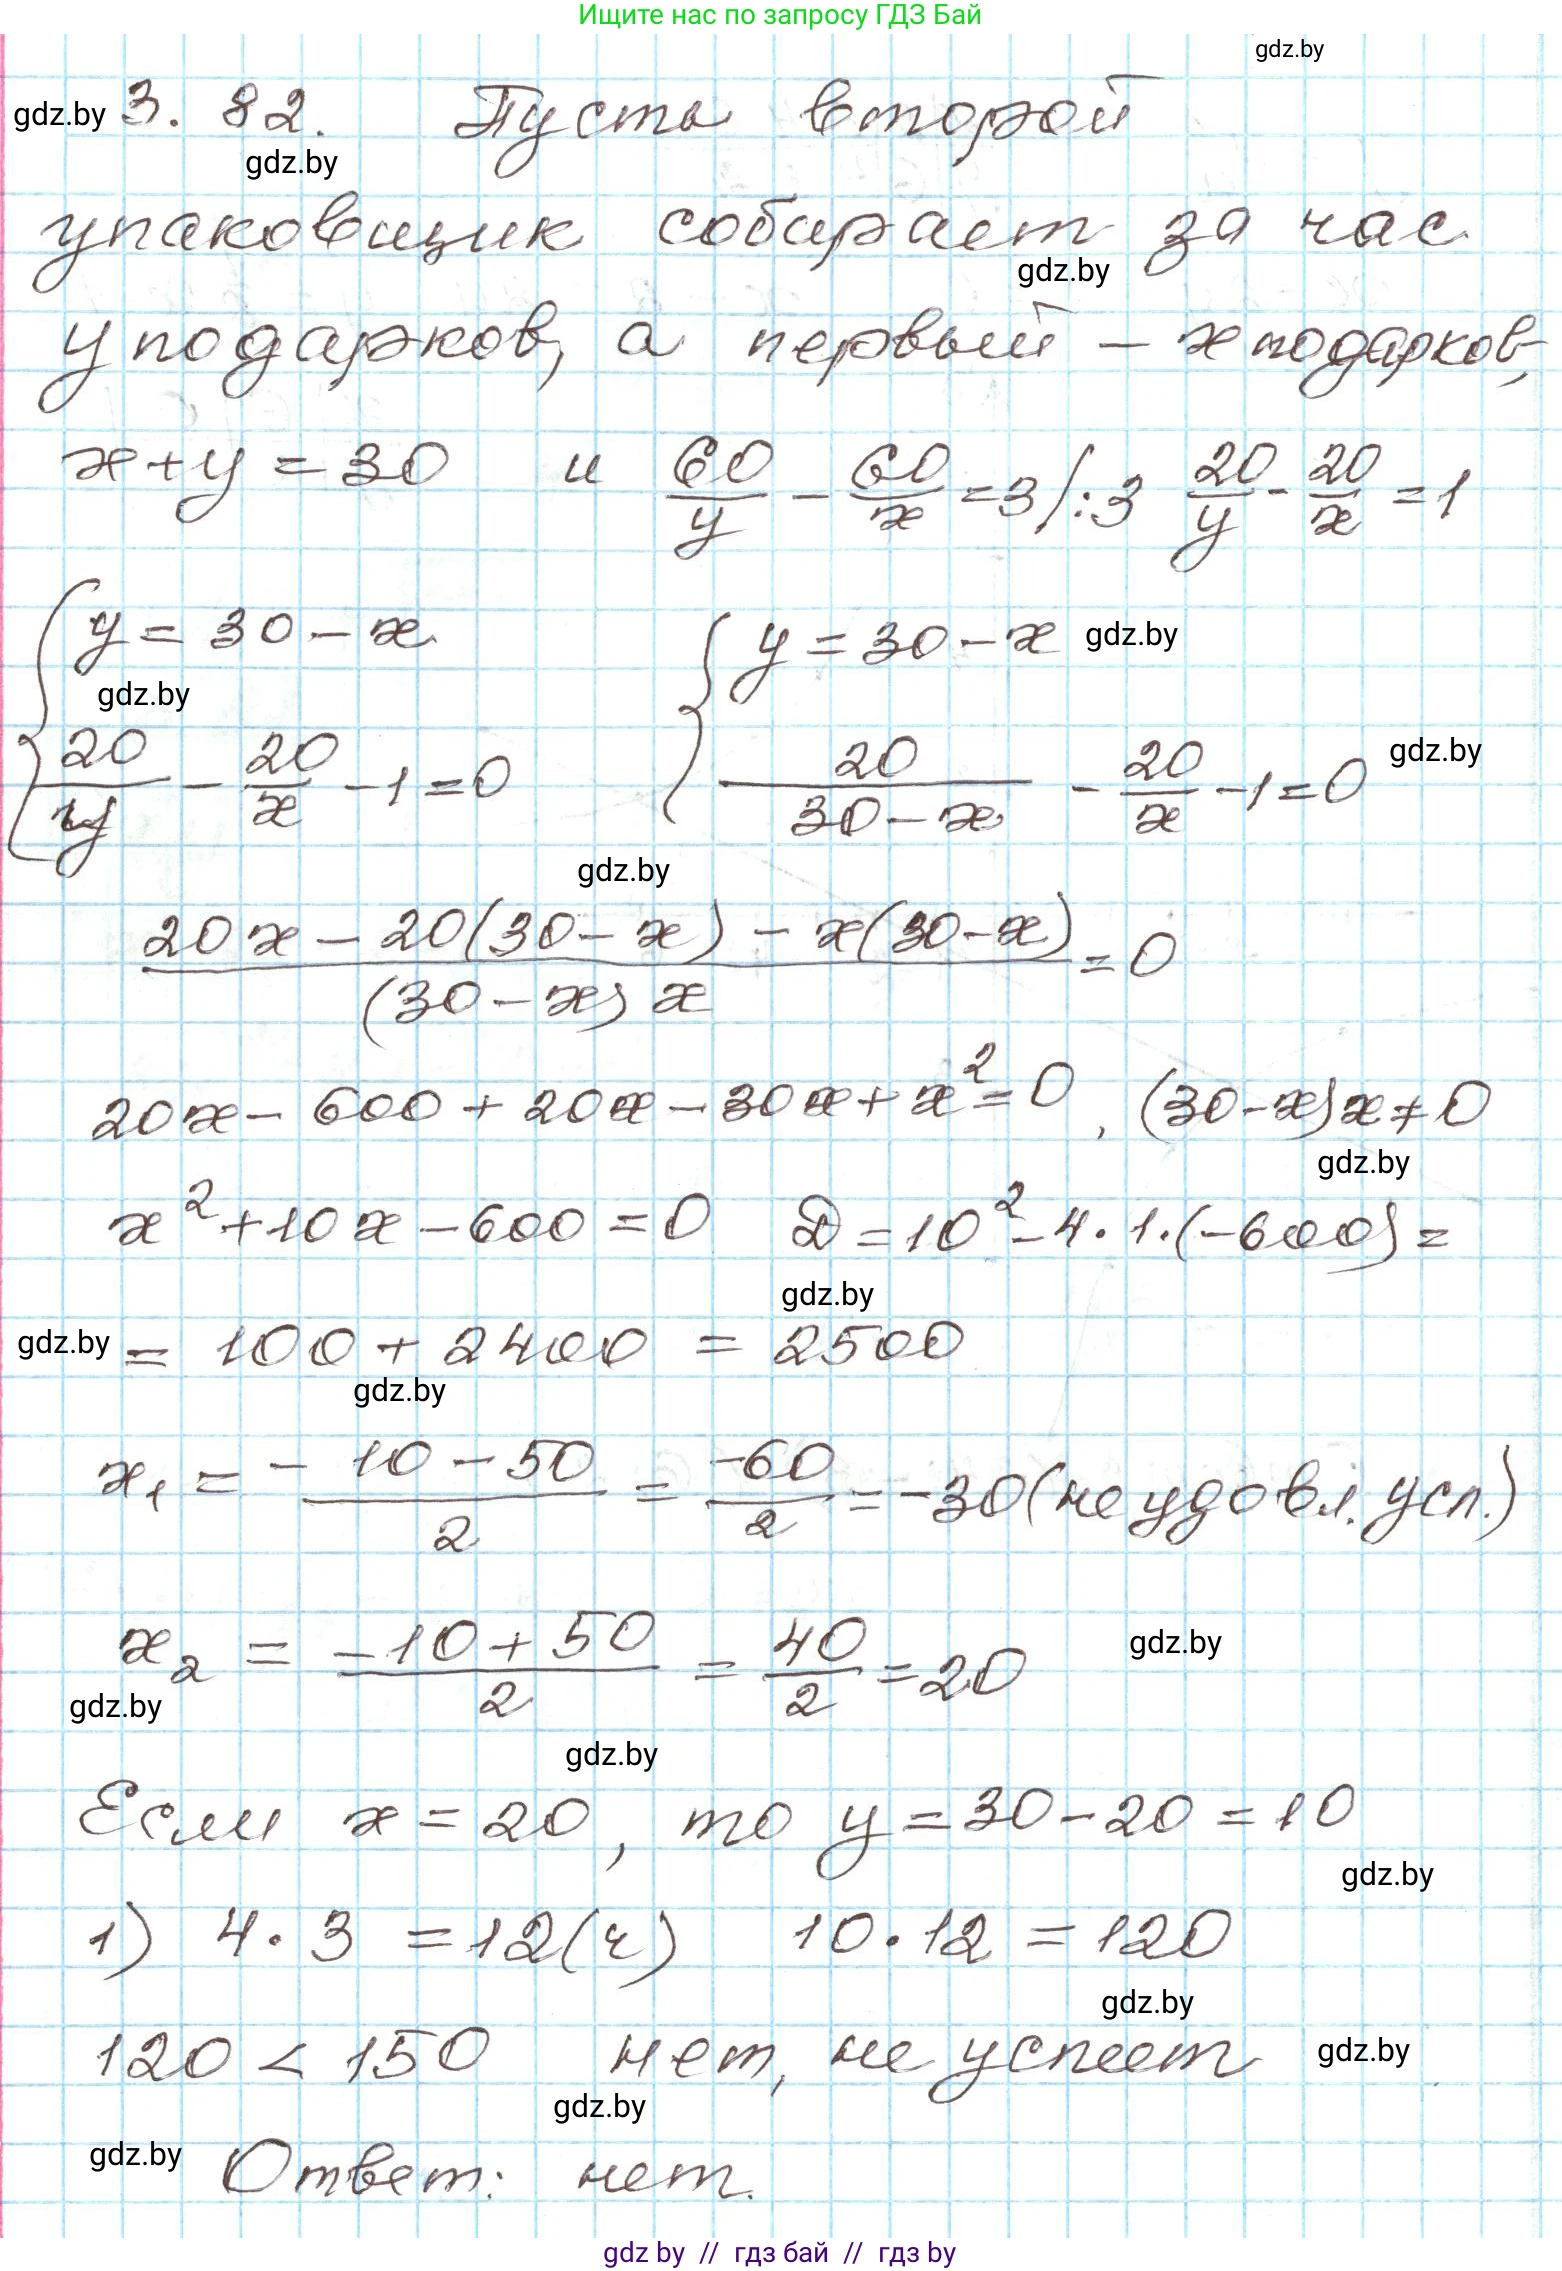 Ищите нас по запросу ГДЗ Бай
gdz.by
gdz.by 3.82. Пусть второй
gdz.by
упаковщик собирает за час
gdz.by
y подарков, а первый – x подарков,
x + y = 30 и 60/y - 60/x = 3 |:3 20/y - 20/x = 1
{ y = 30 - x { y = 30 - x gdz.by
gdz.by
20/y - 20/x - 1 = 0 20/(30 - x) - 20/x - 1 = 0 gdz.by
gdz.by
(20x - 20(30 - x) - x(30 - x))/((30 - x)x) = 0
20x - 600 + 20x - 30x + x² = 0, (30 - x)x ≠ 0
gdz.by
x² + 10x - 600 = 0 D = 10² - 4·1·(-600) =
gdz.by
gdz.by = 100 + 2400 = 2500
gdz.by
x₁ = (-10 - 50)/2 = -60/2 = -30 (не удовл. усл.)
x₂ = (-10 + 50)/2 = 40/2 = 20 gdz.by
gdz.by
gdz.by
Если x = 20, то y = 30 - 20 = 10
gdz.by
1) 4 · 3 = 12 (ч) 10 · 12 = 120
gdz.by
120 < 150 нет, не успеет gdz.by
gdz.by
gdz.by Ответ: нет.
gdz by // гдз бай // гдз by